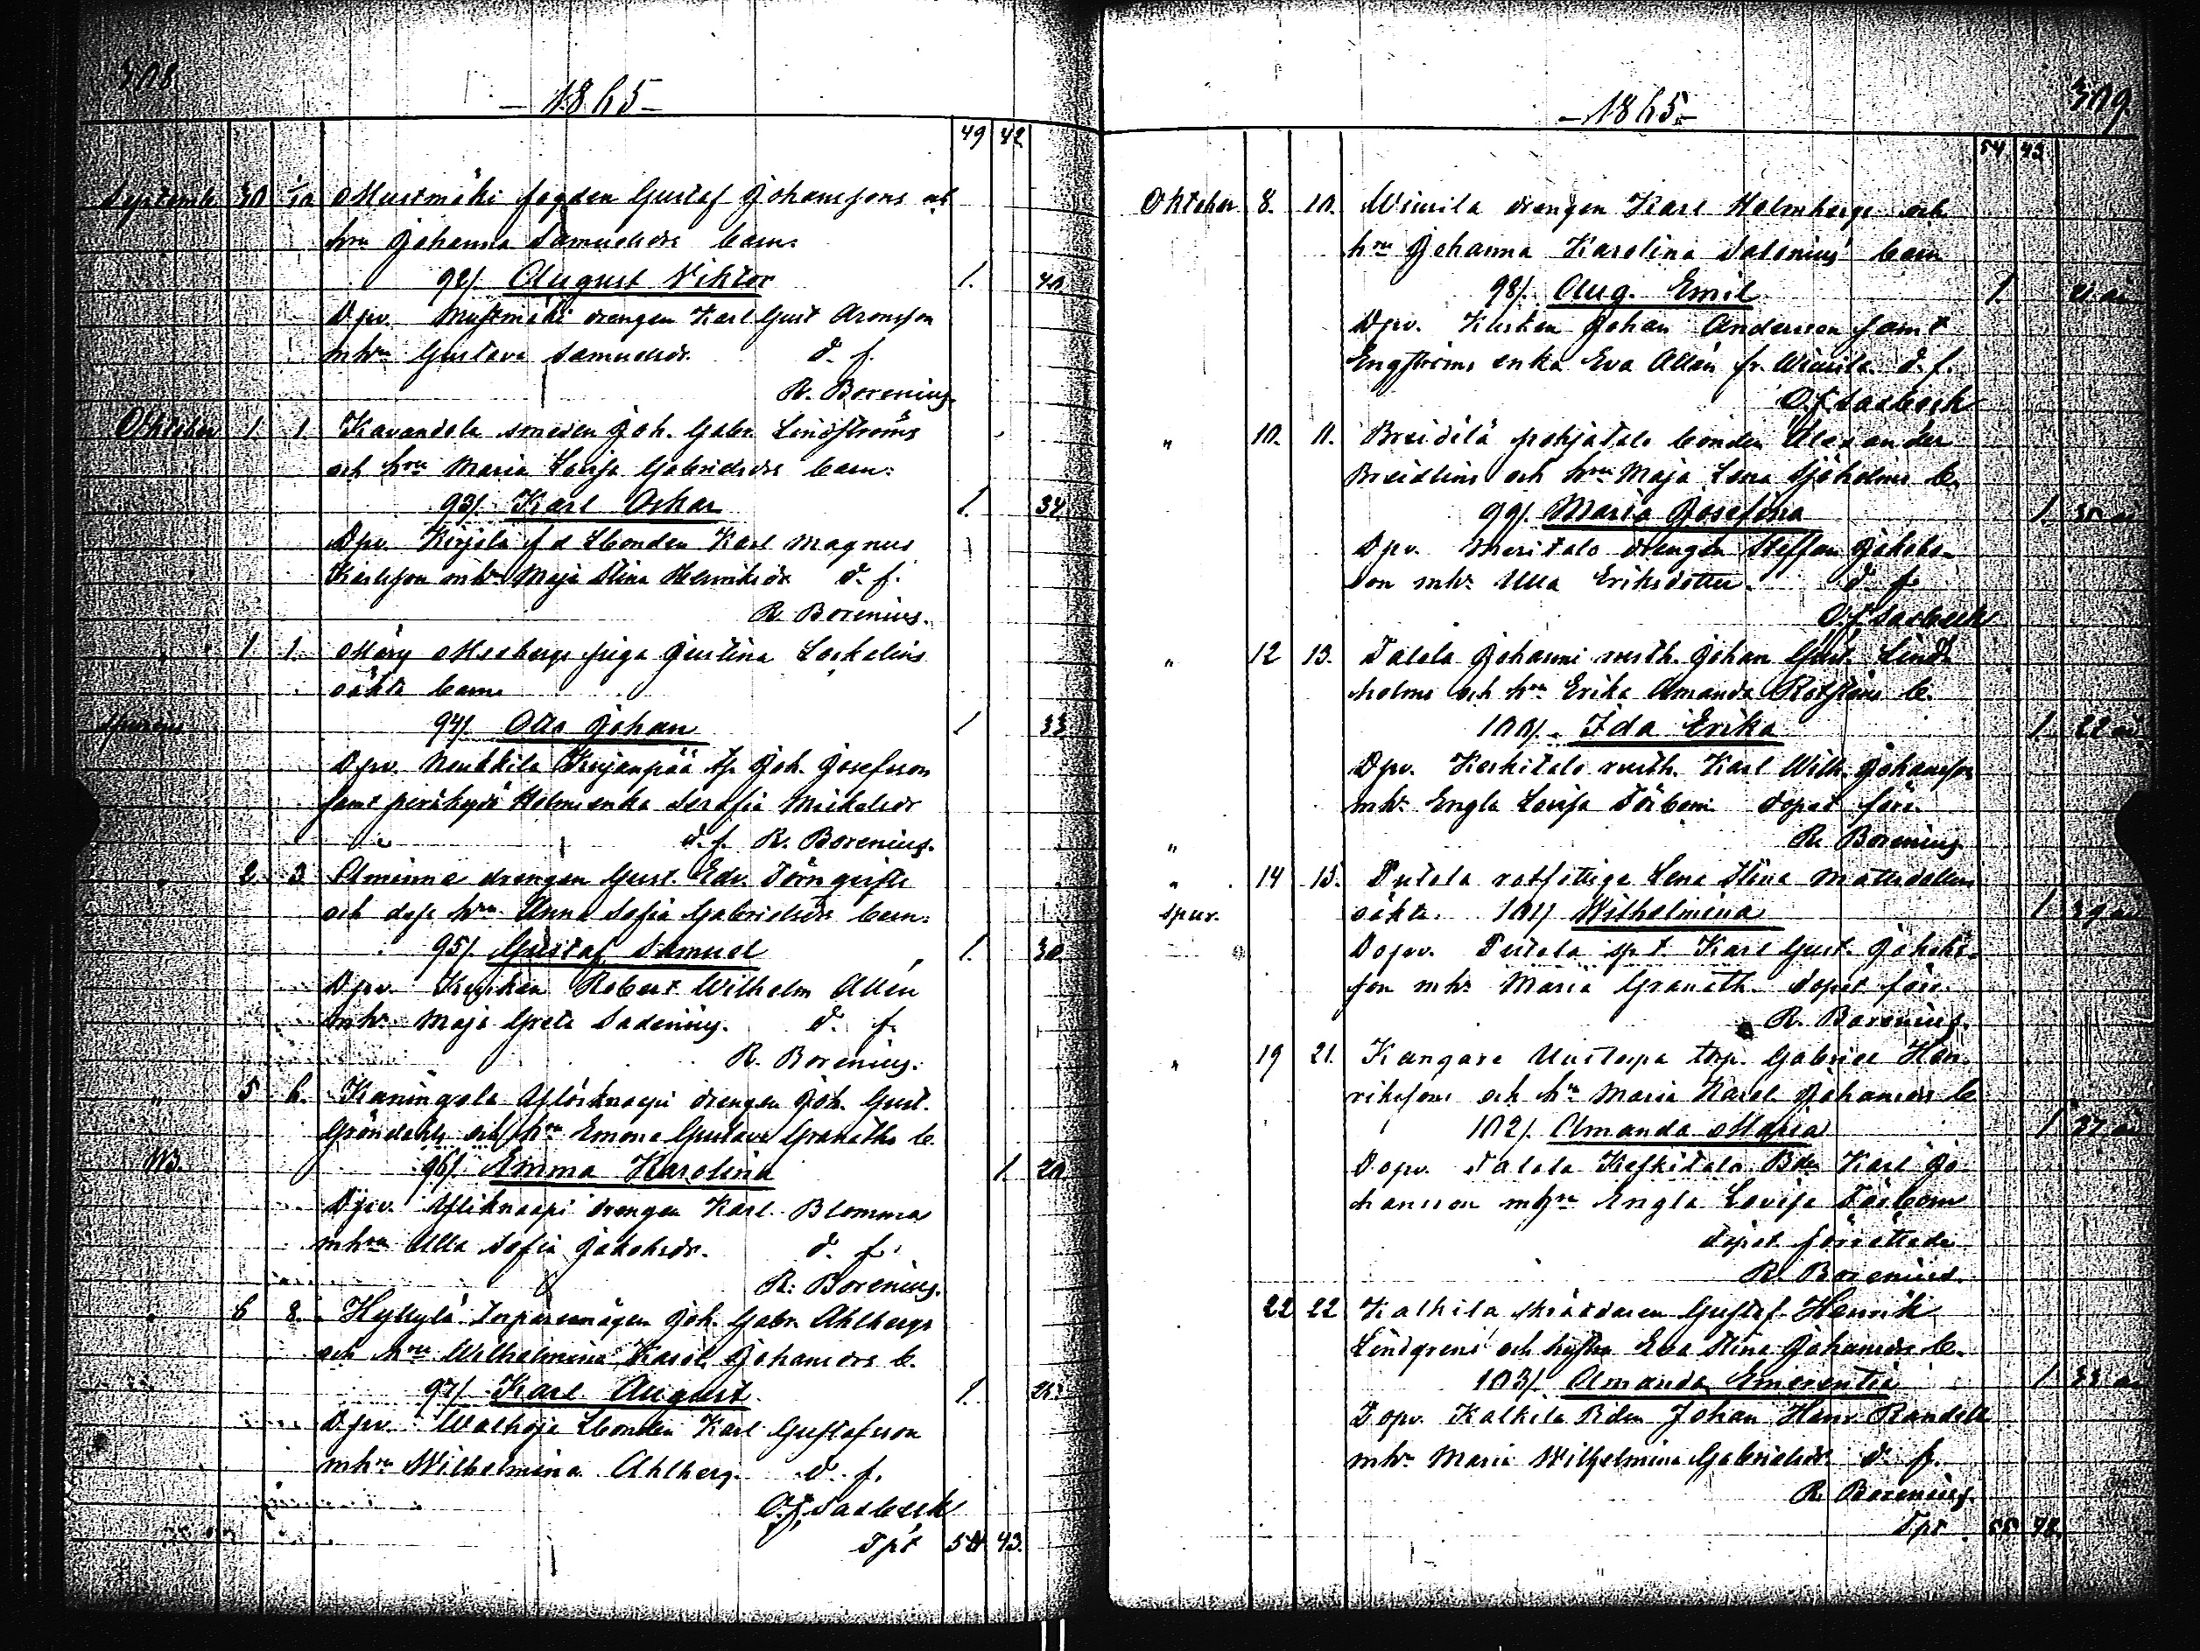 308.
- 1865 -
49 42
September 30 1/10 Mustmäki fogden Gustaf Johanssons och
hru Johanna Samuelsdrs barn:
92/. August Viktor 1. 40
Dpv. Mustmäki drengen Karl Gust Aronsson
mhru Gustava Samuelsdr. d. f.
R. Borenius.
Oktober 1. 1. Kavandola smeden Joh. Gabr. Lindströms
och hru Maria Lovisa Gabrielsdrs barn:
93/. Karl Oskar 1. 34
Dpv. Kirjola f d Lbonden Karl Magnus
Karlsson mhr Maja Stina Henriksdr d. f.
R. Borenius.
1. 1. Moberge piga Justina
oäkta barn
spurius 94/. Otto Johan 1 33
Dpv. Nenkkila tp Joh. Josefsson
samt Holms enka Serafia Mickelsdr
d. f. R. Borenius.
2 3 Aminne drengen Gust. Edv. Törnqvists
och dess hru Anna Sofia Gabrielsdrs barn:
95/. Gustaf Samuel 1. 30
Dpv. Kusken Robert Wilhelm Allén
mhr Maja Greta Sadenius. d. f.
R. Borenius.
" 5 6. Kaningola drengen Joh. Gust.
Gröndahls och hru Emma Gustava Granaths b.
96/. Emma Karolina 1. 20
Dpv. drengen Karl Blomma
mhru Ulla Sofia Jakobsdr. d. f.
R. Borenius.
6 8. Hyllylä Joh. Gabr. Ahlbergs
och hru Wilhelmina Karol. Johansdrs b.
97/. Karl August 1.
Dpv. Walhoja Lbonden Karl Gustafsson
mhru Wilhelmina Ahlberg. d. f.
O. f. Saxbeck
Tpt 54 43.
309
- 1865 -
54. 43.
Oktober 8. 10. Wiurila drengen Karl Holmbergs och
hru Johanna Karolina Salonius' barn
98/. Aug. Emil 1.
Dpv. Kusken Johan Andersson samt
Engströms enka Eva Allén fr. Wiurila d. f.
O. f. Saxbeck
" 10. 11. Breidilä pohjatalo bonden Alexander
Breidlins och hru Maja Lena Sjöholms b.
99/. Maria Josefina 1
Dpv. Meritalo drengen Steffan Jakobs-
son mhr Ulla Eriksdotter. d. f.
O. f. Saxbeck
" 12 13. Talola Johanni rusth. Johan Gust. Lind-
holms och hru Erika Amanda b.
100/. Ida Erika 1. 22 år
Dpv. Keskitalo rusth. Karl Wilh. Johansson
mhr Engla Lovisa Törbom dopet förr.
" R. Borenius
" 14 15. Putola rotfattiga Lena Stina Mattsdotters
spur. oäkta. 101/ Wilhelmina 1 39 år
Dopv. Putola Karl Gust. Jakobs-
son mhr Maria Granath. dopet förr.
R. Borenius.
" 19 21. Kangare Uustorpa torp. Gabriel Hen-
rikssons och hru Maria Karol Johansdrs b
102/. Amanda Maria 1 37 år
Dopv. Talola Keskitalo Bdn Karl Jo-
hansson mhru Engla Lovisa Törbom
dopet förrättade
R. Borenius.
22 22 Kalkila skräddaren Gustaf Henrik
Lindgrens och hustru Eva Stina Johansdrs b.
103/. Amanda Emerentia 1 33 år
Dopv. Kalkila Bdn Johan Henr. Randell
mhr Maria Wilhelmina Gabrielsdr d. f.
R. Borenius.
Tpt 55 48.